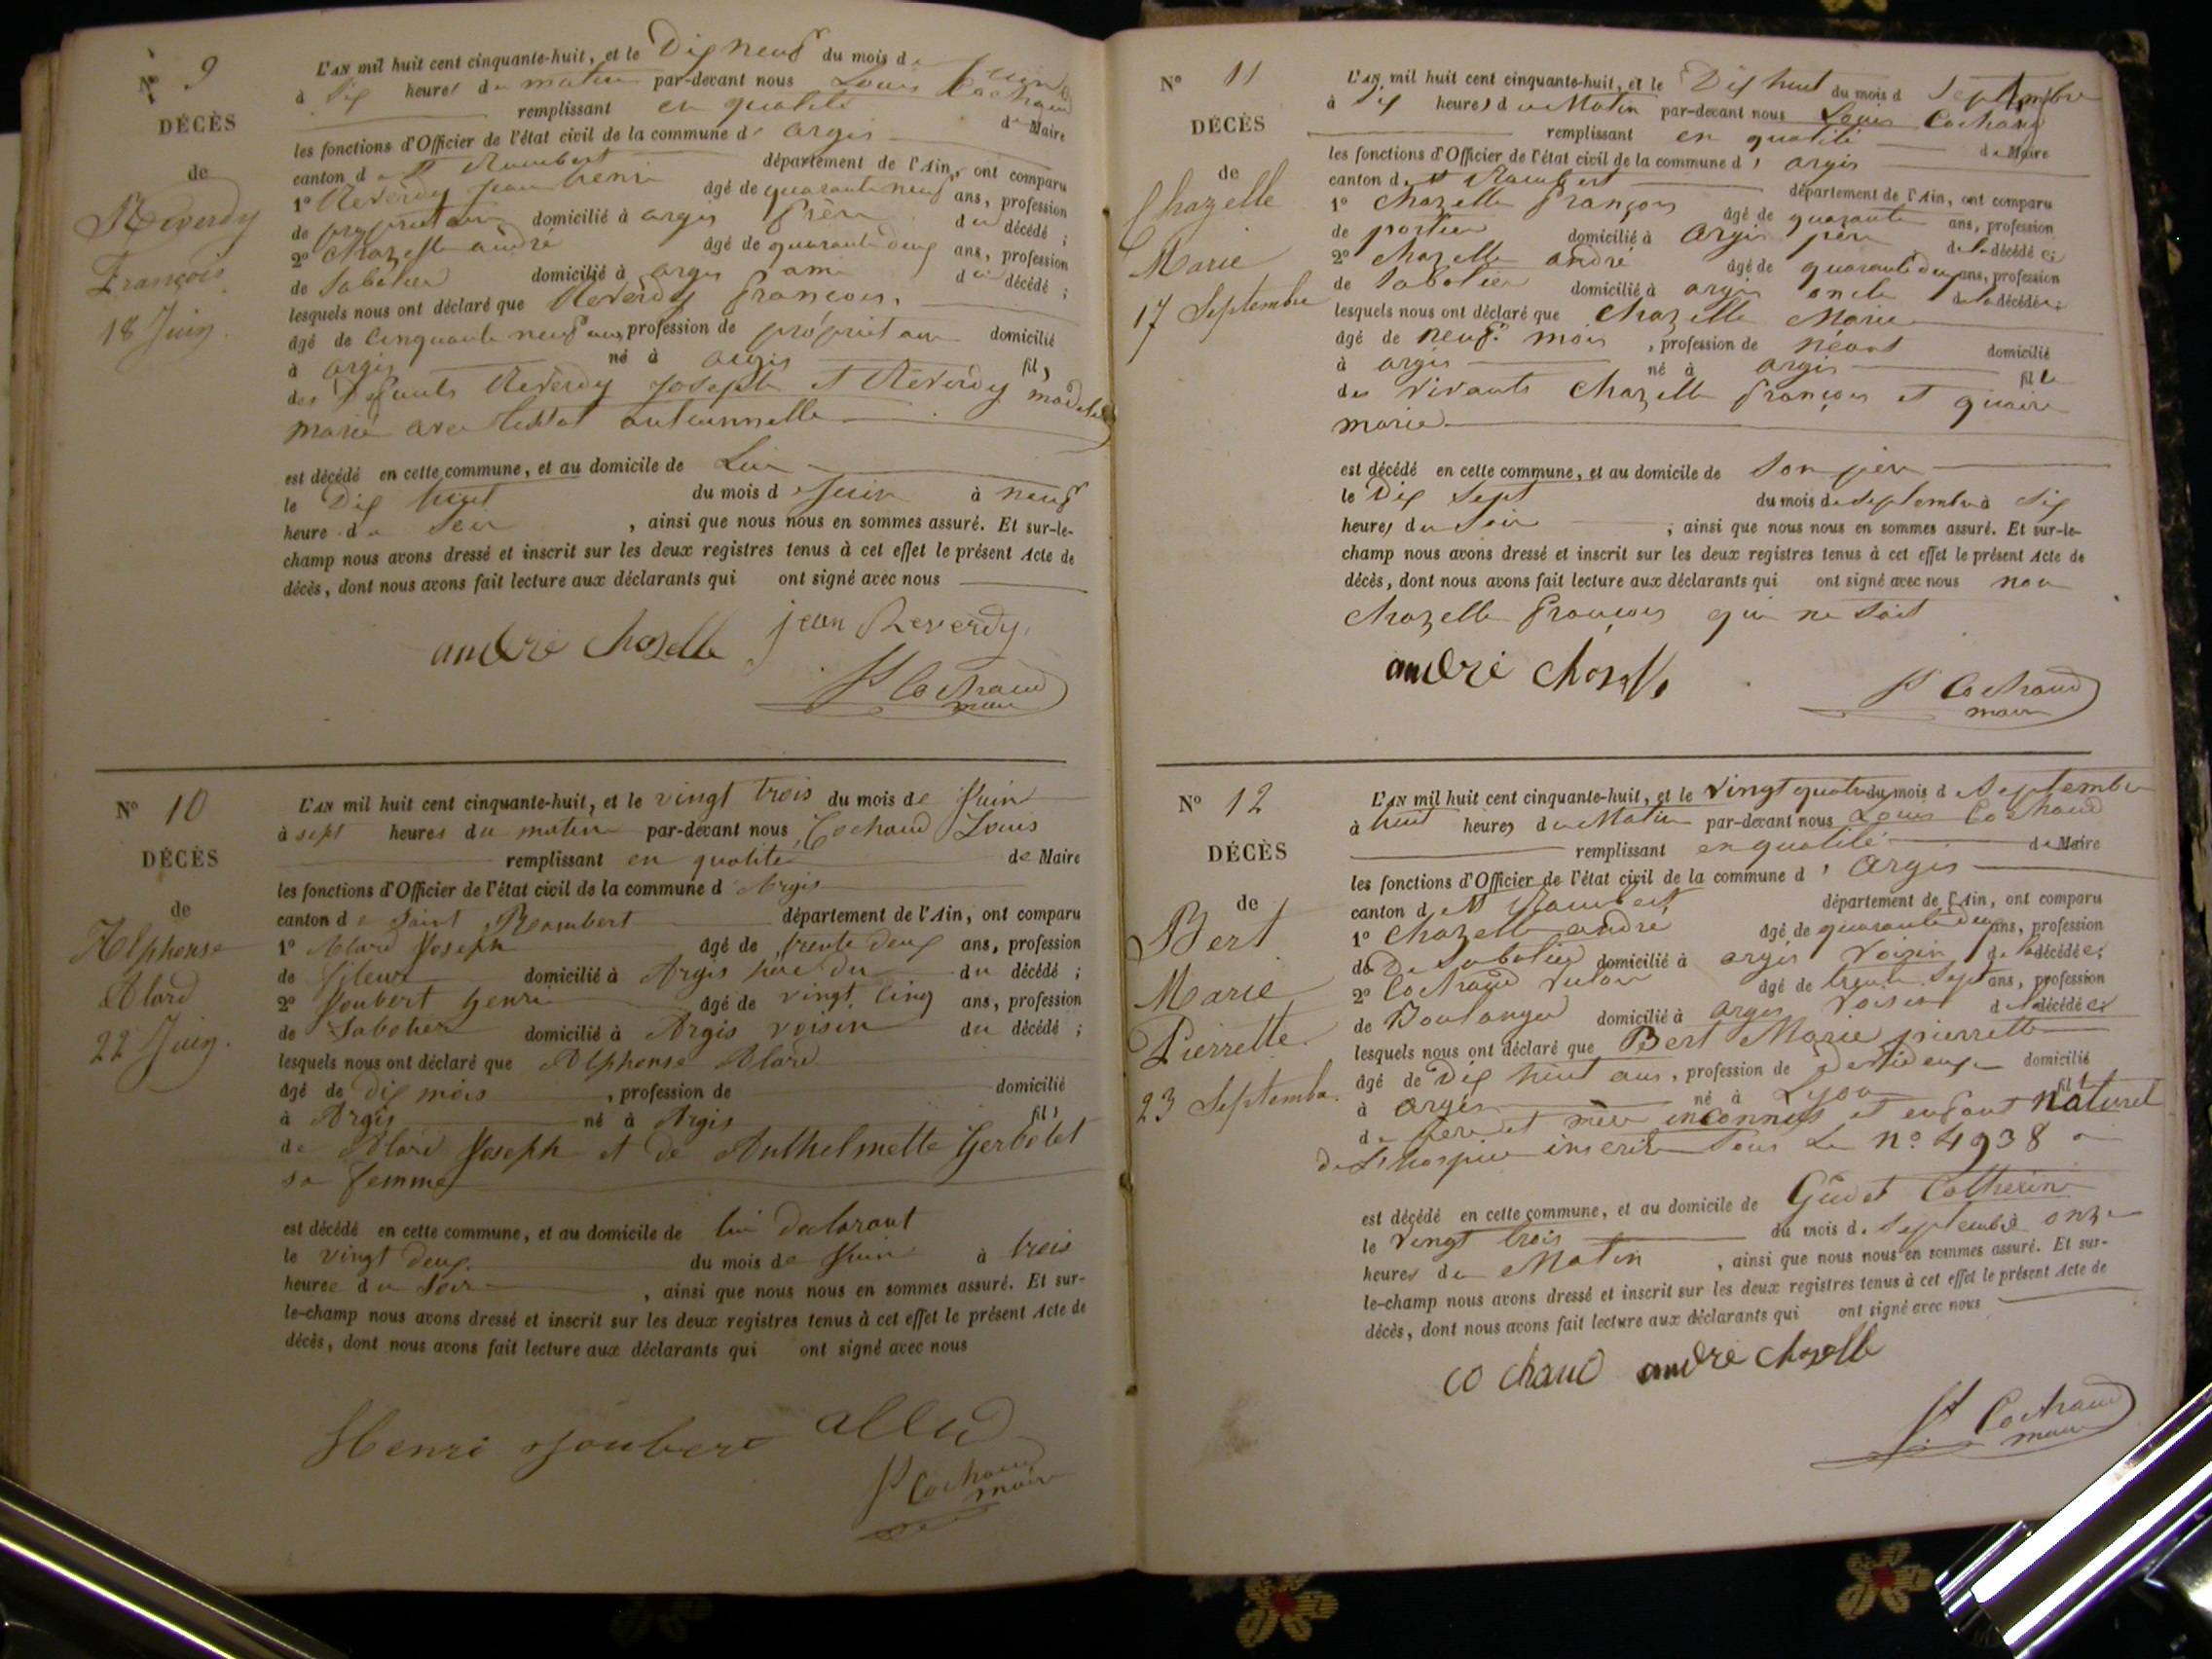 N° 9
DÉCÈS
de
Reverdy
François
18 Juin
L'AN mil huit cent cinquante-huit, et le Dix neuf du mois de Juin
à Six heures du matin par-devant nous Louis Cochaud
remplissant en qualité de Maire
les fonctions d'Officier de l'état civil de la commune d'argis
canton de St Rambert département de l'Ain, ont comparu
1° Reverdy Jean henri âgé de quarante neuf ans, profession
de propriétaire domicilié à argis frère du décédé ;
2° Chazelle andré âgé de quarante deux ans, profession
de Sabotier domicilié à argis ami du décédé ;
lesquels nous ont déclaré que Reverdy françois,
âgé de Cinquante neuf ans, profession de propriétaire domicilié
à argis né à argis fils
des Défunts Reverdy Joseph et Reverdy
marié avec
est décédé en cette commune, et au domicile de Lui
le Dix huit du mois de Juin à neuf
heure du Soir, ainsi que nous nous en sommes assuré. Et sur-le-
champ nous avons dressé et inscrit sur les deux registres tenus à cet effet le présent Acte de
décès, dont nous avons fait lecture aux déclarants qui ont signé avec nous
andré Chazelle jean Reverdy
Ls Cochaud
maire
N° 10
DÉCÈS
de
Alphonse
Alard
22 Juin.
L'AN mil huit cent cinquante-huit, et le vingt trois du mois de Juin
à sept heures du matin par-devant nous Cochaud Louis
remplissant en qualité de Maire
les fonctions d'Officier de l'état civil de la commune d'Argis
canton de Saint Rambert département de l'Ain, ont comparu
1° Alard Joseph âgé de trente deux ans, profession
de fileur domicilié à Argis père du du décédé ;
2° Joubert henri âgé de vingt cinq ans, profession
de Sabotier domicilié à Argis voisin du décédé ;
lesquels nous ont déclaré que Alphonse Alard
âgé de Dix mois, profession de domicilié
à Argis né à Argis fils
de Alard Joseph et de Anthelmette Gerbolet
sa femme
est décédé en cette commune, et au domicile de lui declarant
le vingt deux du mois de Juin à trois
heures du Soir, ainsi que nous nous en sommes assuré. Et sur-
le-champ nous avons dressé et inscrit sur les deux registres tenus à cet effet le présent Acte de
décès, dont nous avons fait lecture aux déclarants qui ont signé avec nous
Henri Joubert
Ls Cochaud
maire
N° 11
DÉCÈS
de
Chazelle
Marie
17 Septembre
L'AN mil huit cent cinquante-huit, et le Dix huit du mois d Septembre
à Six heures du Matin par-devant nous Louis Cochaud
remplissant en qualité de Maire
les fonctions d'Officier de l'état civil de la commune d'argis
canton de St Rambert département de l'Ain, ont comparu
1° Chazelle françois âgé de quarante ans, profession
de domicilié à Argis père de la décédée ;
2° Chazelle andré âgé de quarante deux ans, profession
de Sabotier domicilié à argis oncle de la décédée ;
lesquels nous ont déclaré que Chazelle Marie
âgé de neuf mois, profession de néant domicilié
à argis né à argis fille
des vivants Chazelle françois et
marie
est décédé en cette commune, et au domicile de Son père
le Dix Sept du mois de Septembre à Six
heures du Soir ; ainsi que nous nous en sommes assuré. Et sur-le-
champ nous avons dressé et inscrit sur les deux registres tenus à cet effet le présent Acte de
décès, dont nous avons fait lecture aux déclarants qui ont signé avec nous non
Chazelle françois qui ne Sait
andré Chazelle
Ls Cochaud
maire
N° 12
DÉCÈS
de
Bert
Marie
Pierrette
23 Septembre.
L'AN mil huit cent cinquante-huit, et le vingt quatre du mois d Septembre
à huit heures du Matin par-devant nous Louis Cochaud
remplissant en qualité de Maire
les fonctions d'Officier de l'état civil de la commune d'Argis
canton de St Rambert département de l'Ain, ont comparu
1° Chazelle andré âgé de quarante deux ans, profession
de De Sabotier domicilié à argis voisin de la décédée ;
2° Cochaud âgé de trente Sept ans, profession
de Boulanger domicilié à argis voisin de la décédée
lesquels nous ont déclaré que Bert Marie pierrette
âgé de Dix huit ans, profession de domicilié
à argis né à Lyon fille
de père et mère inconnus et enfant naturel
de L'hospice inscrite Sous Le n° 4938
est décédé en cette commune, et au domicile de Guidet Catherine
le vingt trois du mois de Septembre à onze
heures du Matin, ainsi que nous nous en sommes assuré. Et sur-
le-champ nous avons dressé et inscrit sur les deux registres tenus à cet effet le présent Acte de
décès, dont nous avons fait lecture aux déclarants qui ont signé avec nous
Cochaud andré Chazelle
Ls Cochaud
maire